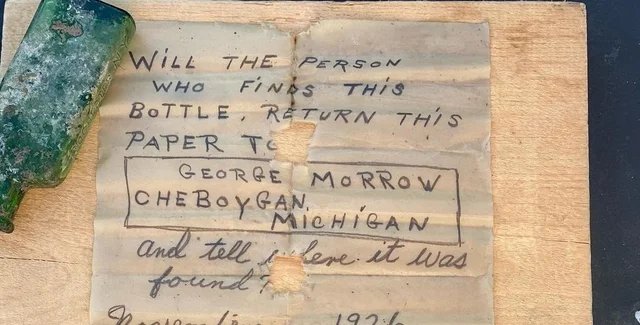 WiLL THE PERSON
WHO FiNDS THiS
BOTTLE, RETURN THiS
PAPER TO
GEORGE MORROW
CHEBOYGAN,
MiCHiGAN
and tell where it was
found?
November 1926